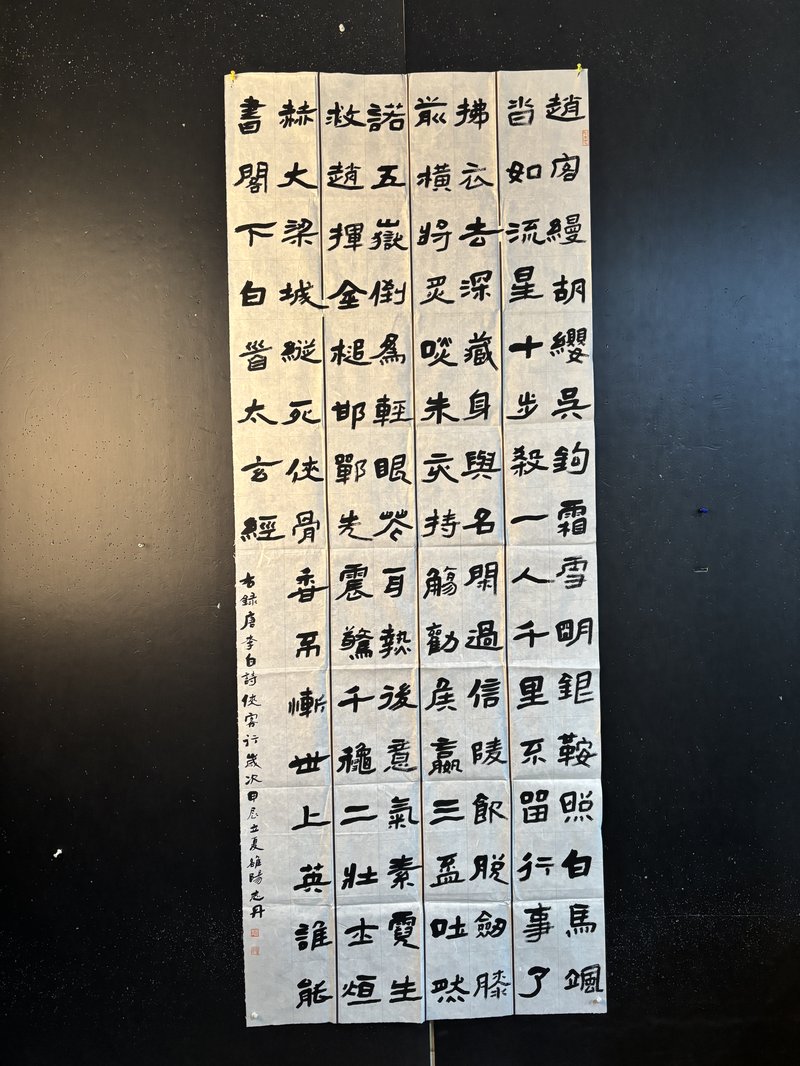 趙客縵胡纓吳鉤霜雪明銀鞍照白馬颯
沓如流星十步殺一人千里不留行事了
拂衣去深藏身與名閑過信陵飲脫劍膝
前橫將炙啖朱亥持觴勸侯嬴三盃吐然
諾五嶽倒為輕眼花耳熱後意氣素霓生
救趙揮金槌邯鄲先震驚千穐二壯士烜
赫大梁城縱死俠骨香不慚世上英誰能
書閣下白首太玄經
右錄唐李白詩俠客行歲次甲辰立夏雒陽志丹